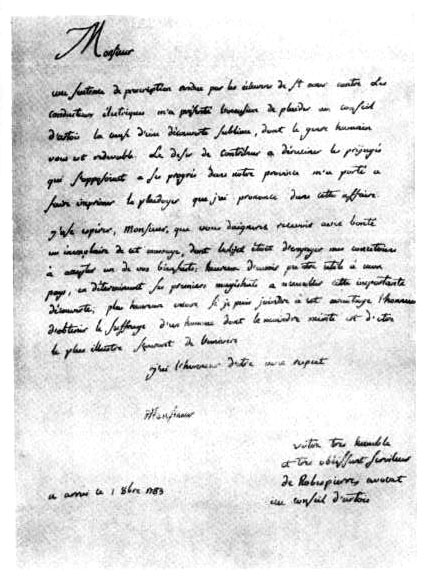 Monsieur
une sentence de proscription rendue par les échevins de St omer contre les
conducteurs électriques m'a présenté l'occasion de plaider au conseil
d'artois la cause d'une découverte sublime, dont le genre humain
vous est redevable. Le desir de contribuer a déraciner les préjugés
qui s'opposoient a ses progrès dans notre province m'a porté a
faire imprimer le plaidoyer que j'ai prononcé dans cette affaire.
j'ose espérer, Monsieur, que vous daignerez recevoir avec bonté
un exemplaire de cet ouvrage, dont l'objet étoit d'engager mes concitoiens
à accepter un de vos bienfaits; heureux d'avoir pu etre utile à mon
pays, en déterminant ses premiers magistrats a accueillir cette importante
découverte; plus heureux encore si je puis joindre à cet avantage l'honneur
d'obtenir le suffrage d'un homme dont le moindre mérite est d'etre
le plus illustre sçavant de l'univers
j'ai l'honneur d'etre avec respect
Monsieur
votre tres humble
et tres obéissant serviteur
de Robespierre avocat
au conseil d'artois
a arras le 1 8bre 1783